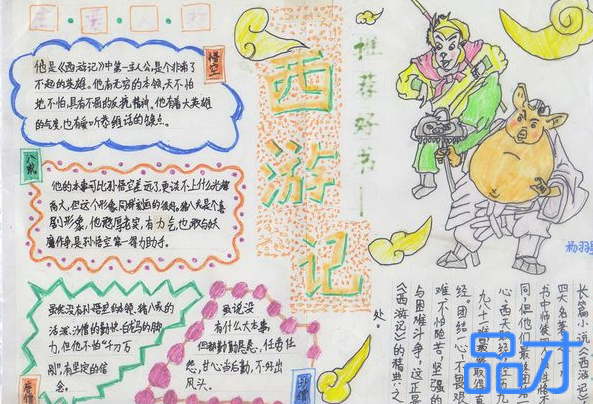 西游记
推荐好书
悟空
他是《西游记》中第一主人公,是个非常了
不起的英雄。他有无穷的本领,天不怕
地不怕,具有不屈的反抗精神。他有着大英雄
的气度,也有爱听恭维话的缺点。
八戒
他的本事可比孙悟空差远了,更谈不上什么光辉
高大,但这个形象同样刻画的很好。猪八戒是个喜
剧形象,他憨厚老实,有力气,也敢与妖
魔作争,是孙悟空第一得力助手。
唐僧
虽然没有孙悟空的本领、猪八戒的
活泼、沙僧的勤快、白龙马的脚
力,但他不怕“千刀万
剐”,有坚定的信
念。
沙僧
虽说没
有什么大本事,
但都勤勤恳恳,任劳任
怨,甘心当后勤,不好出
风头。
长篇小说《西游记》
四大名著
书中师徒
同,但他们最终团
心,西天取经
九九八十一难,最终取得真
经。团结一心,不畏艰
难,不怕险苦,坚强的
与困难斗争,这正是
《西游记》的精典之
处。
品才